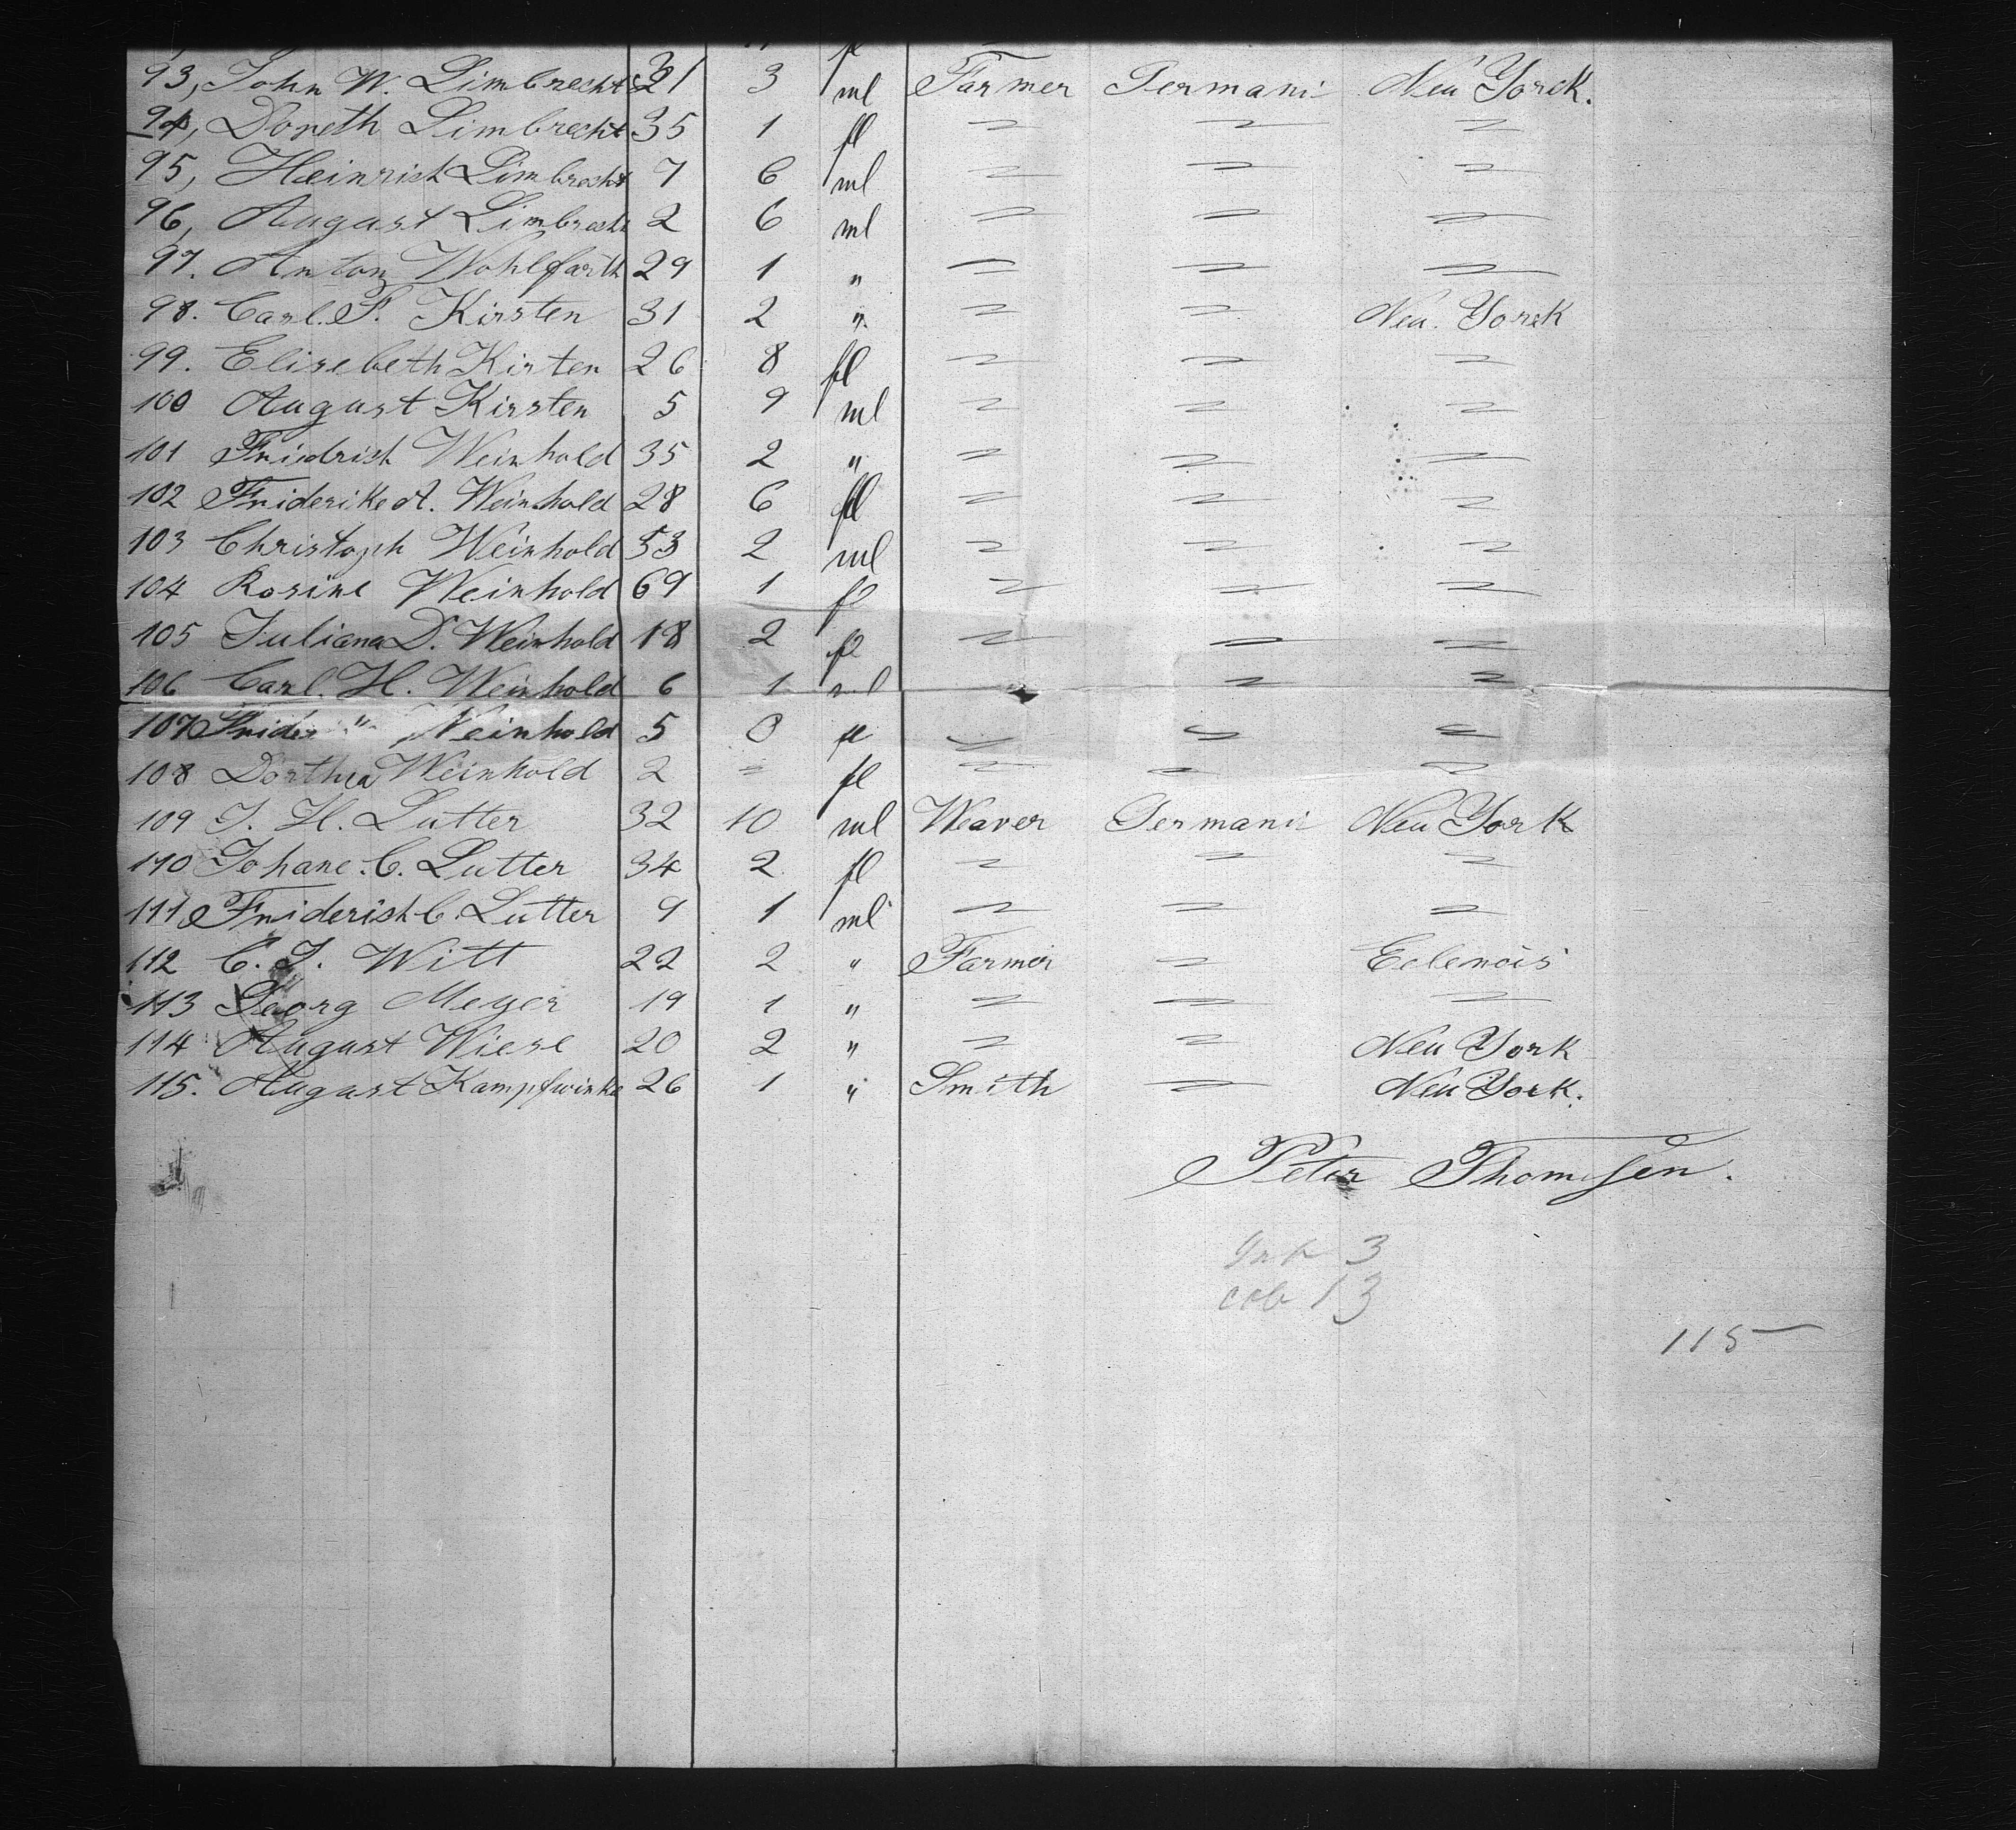 93, John W. Limbrecht 31 3 ml Farmer Germani Neu Yorck.
94, Doreth Limbrecht 35 1 fl " " "
95, Heinrich Limbrecht 7 6 ml " " "
96, August Limbrecht 2 6 ml " " "
97. Anton Wohlfarth 29 1 " " " "
98. Carl. F. Kirsten 31 2 " " " Neu. Yorck
99. Elisebeth Kirsten 26 8 fl " " "
100 August Kirsten 5 9 ml " " "
101 Friedrich Weinhold 35 2 " " " "
102 Friderike A. Weinhold 28 6 fl " " "
103 Christoph Weinhold 53 2 ml " " "
104 Rosine Weinhold 69 1 fl " " "
105 Juliana D. Weinhold 18 2 fl " " "
106 Carl. H. Weinhold 6 1 ml " "
107 Frider " Weinhold 5 8 fl " " "
108 Dorthea Weinhold 2 " fl " " "
109 J. H. Lutter 32 10 ml Weaver Germani Neu York
110 Johane. C. Lutter 34 2 fl " " "
111 Friderish C. Lutter 9 1 ml " " "
112 C. J. Witt 22 2 " Farmer " Eelenois
113 Georg Meyer 19 1 " " " "
114 August Wiese 20 2 " " " Neu York
115. August Kampfwinke 26 1 " Smith " Neu York.
Peter Thomsen.
3
13
115